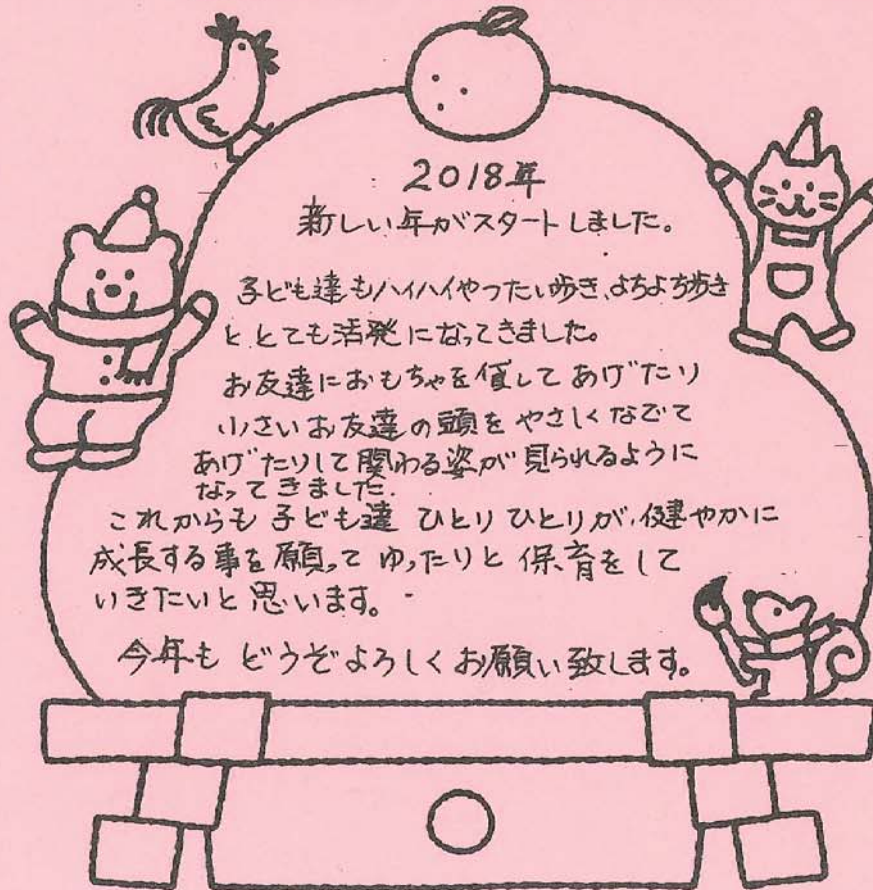 2018年
新しい年がスタートしました。
子ども達もハイハイやつたい歩き、よちよち歩き
ととても活発になってきました。
お友達におもちゃを貸してあげたり
小さいお友達の頭をやさしくなでて
あげたりして関わる姿が見られるように
なってきました。
これからも子ども達ひとりひとりが、健やかに
成長する事を願ってゆったりと保育をして
いきたいと思います。
今年もどうぞよろしくお願い致します。